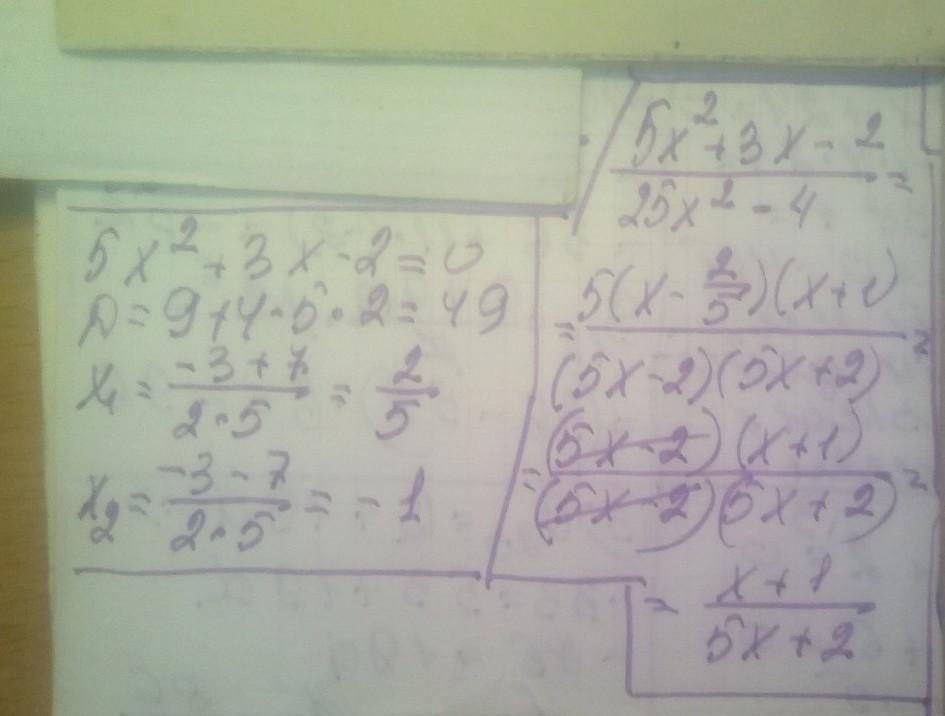 5x² + 3x - 2 = 0
D = 9 + 4·5·2 = 49
x₁ = (-3 + 7)/(2·5) = 2/5
x₂ = (-3 - 7)/(2·5) = -1
(5x² + 3x - 2)/(25x² - 4) =
= 5(x - 2/5)(x + 1)/((5x - 2)(5x + 2)) =
= (5x - 2)(x + 1)/((5x - 2)(5x + 2)) =
= (x + 1)/(5x + 2)